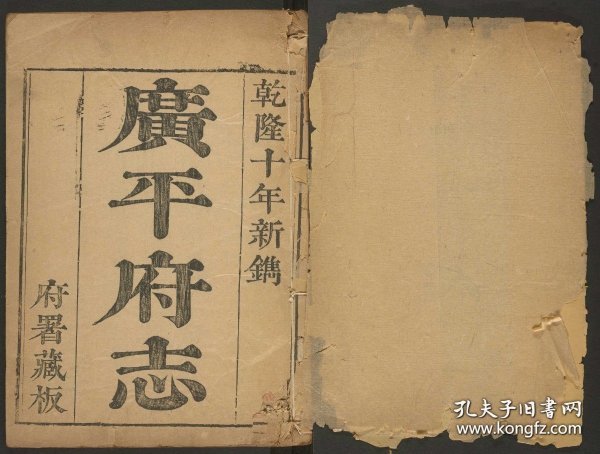 乾隆十年新鐫
廣平府志
府署藏板
孔夫子旧書网
www.kongfz.com